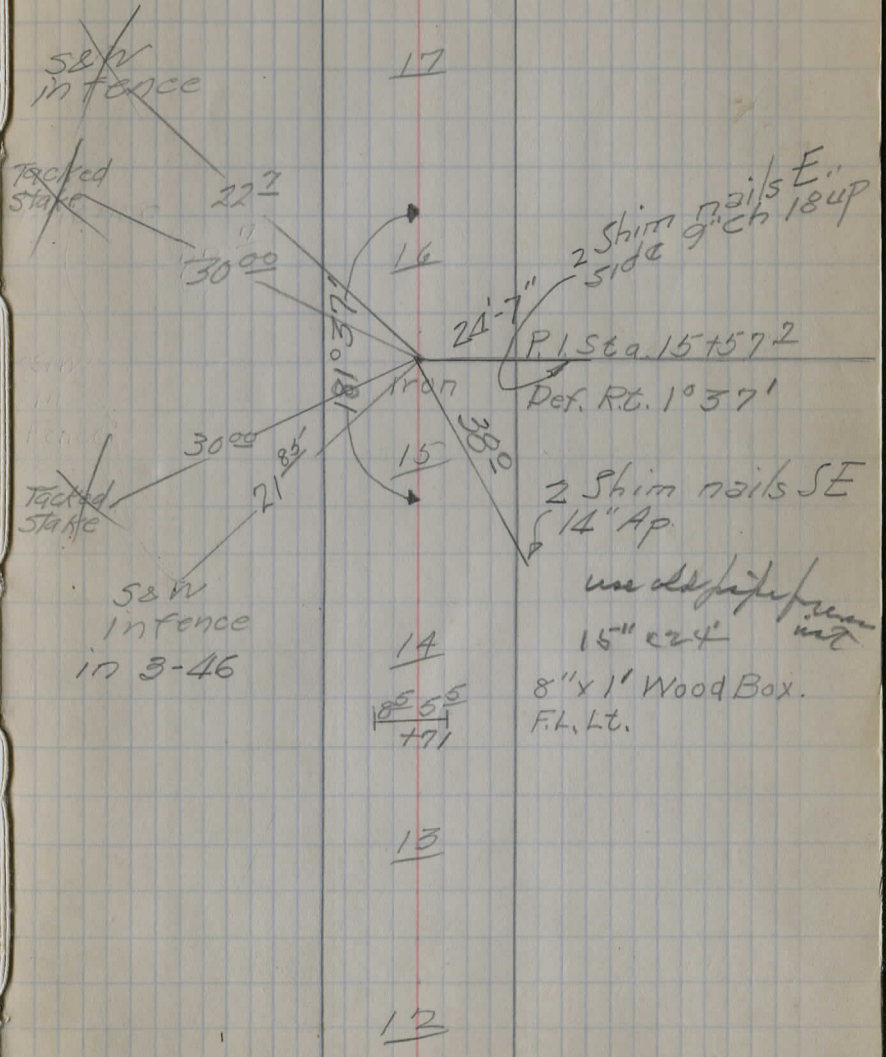 17
S&W
in fence
Tacked
Stake
22 7
30 00
2 Shim nails E.
side 9" ch 18" up
16
181°37'
24'-7"
P.I. Sta. 15+57 2
Iron
Def. Rt. 1°37'
38 0
30 00
21 85'
15
Tacked
Stake
2 Shim nails SE
14" Ap.
S&W
in fence
in 3-46
use old pipe from
14
15" x 24'
8" x 1' Wood Box.
F.L. Lt.
8 5 5 5
+71
13
12